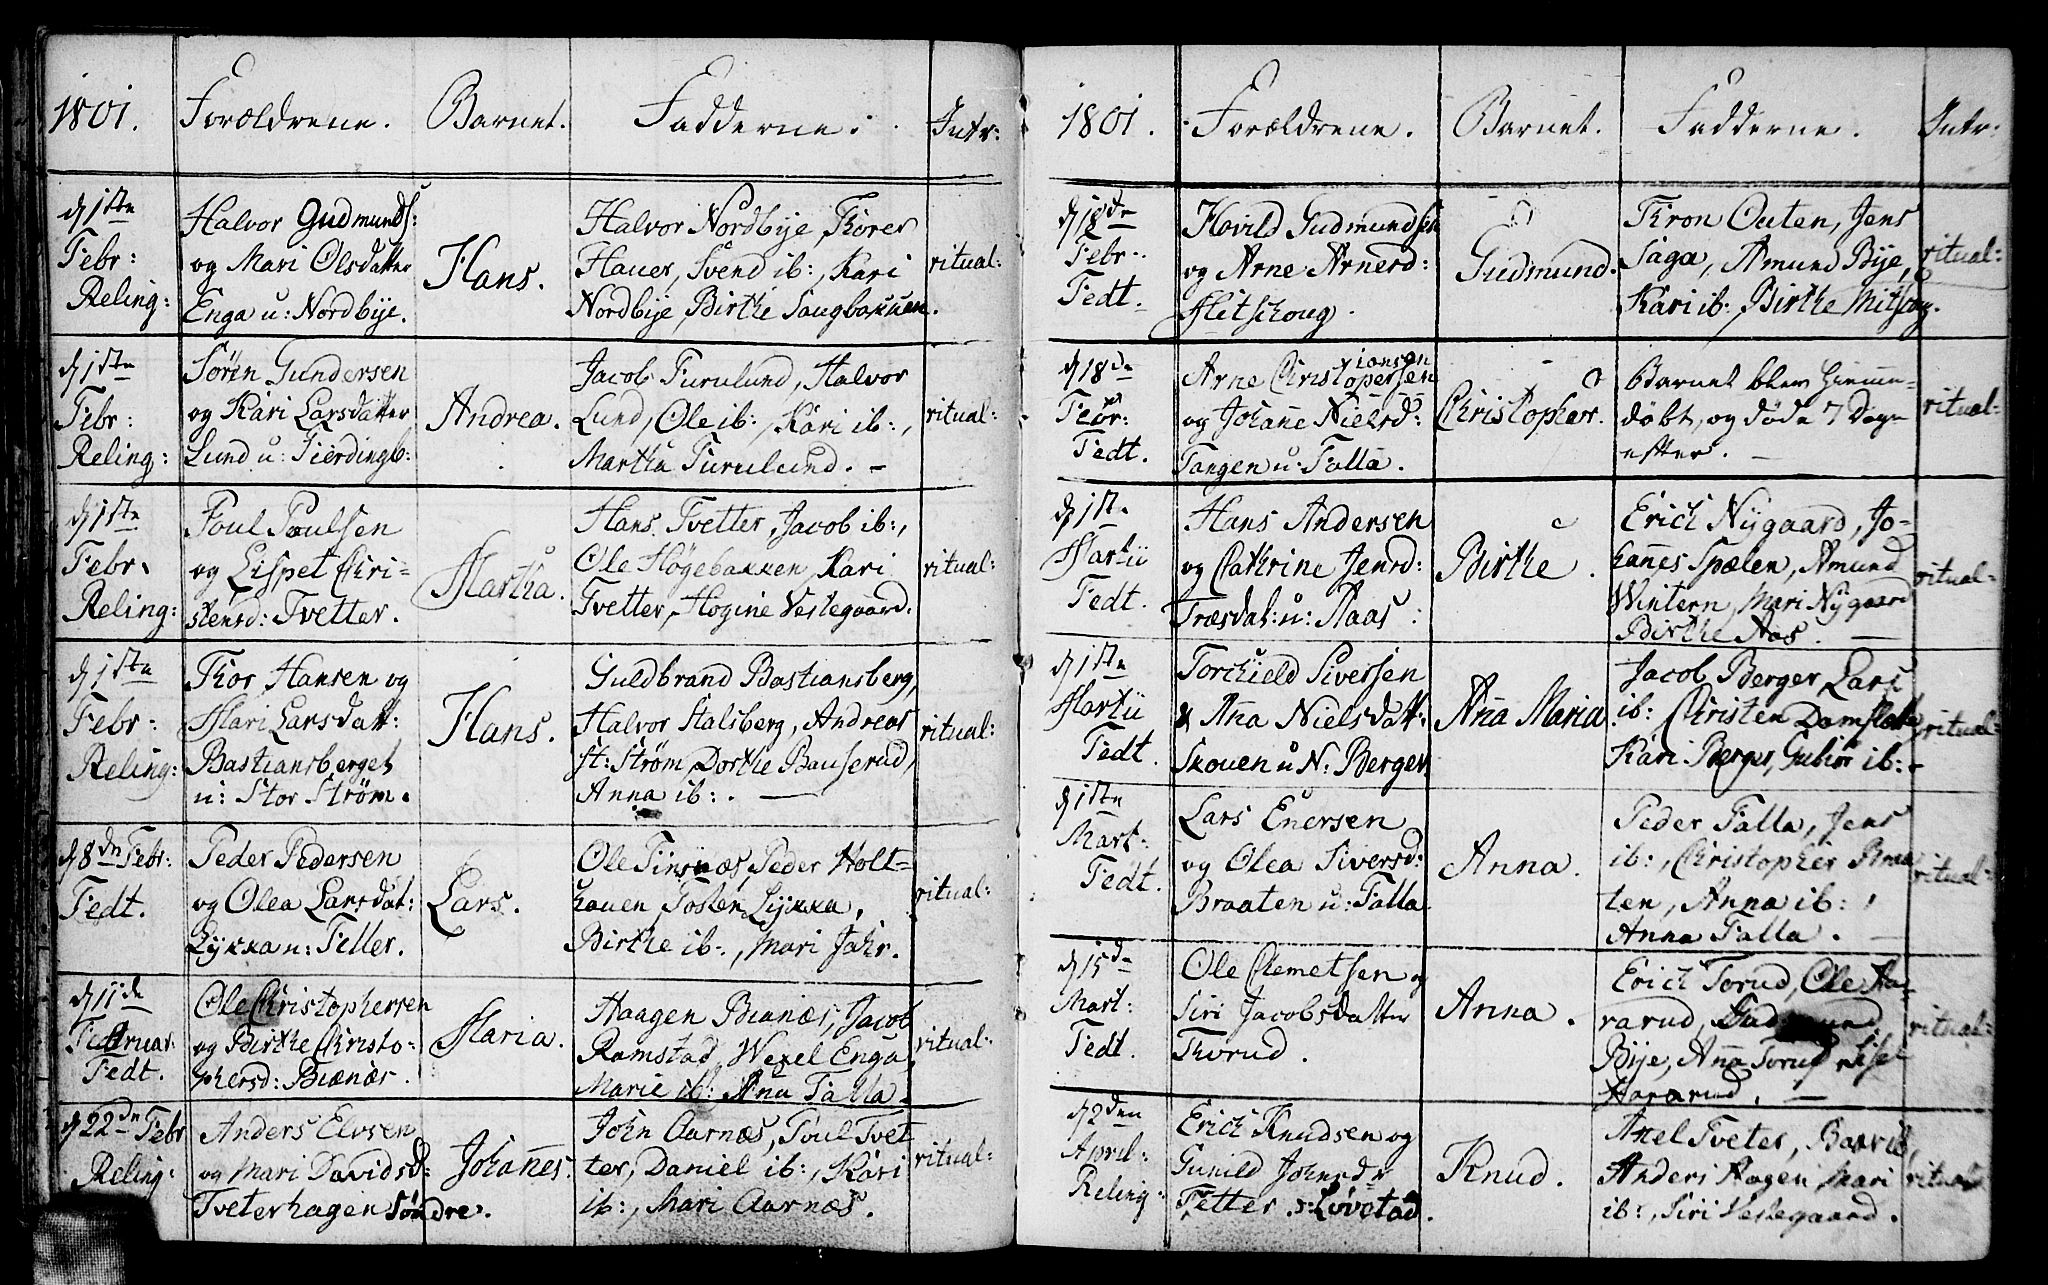 1801. Forældrene. Barnet. Fadderne. Intr:
d 1ste
Febr:
Reling:
Halvor Gudmunds:
og Mari Olsdatter
Enga u: Nordbye.
Hans.
Halvor Nordbye, Thorer
Hauer, Svend ib:, Kari
Nordbye, Birthe Haugbakken.
ritual:
d 1ste
Febr:
Reling:
Søren Gundersen
og Kari Larsdatter
Lund u: Fierdingb:
Andrea.
Jacob Furulund, Halvor
Lund, Ole ib:, Kari ib:,
Martha Furulund. –
ritual:
d 1ste
Febr.
Reling:
Poul Poulsen
og Lispet Chri-
stensd: Tvetter.
Martha.
Hans Tvetter, Jacob ib:,
Ole Høgebakken, Kari
Tvetter, Hogine Vestegaard.
ritual:
d 1ste
Febr:
Reling:
Thor Hansen og
Mari Larsdatt:
Bastiansberget
u: Stor Strøm.
Hans.
Guldbrand Bastiansberg,
Halvor Stalsberg, Andreas
St: Strøm, Dorthe Bauserud,
Anna ib:. —
ritual:
d 8de Febr:
Fedt.
Peder Pedersen
og Olea Larsdat:
Lykka u: Feller.
Lars.
Ole Tinsnæs, Peder Holt-
hauen, Tosten Lykka,
Birthe ib:, Mari Jahr.
ritual:
d 11de
Februar.
Fedt.
Ole Christophersen
og Birthe Christo-
phersd: Biænæs.
Maria.
Haagen Biænæs, Jacob
Ramstad, Wexel Enga,
Marie ib: Anna Falla.
ritual:
d 22de Febr
Reling:
Anders Elvsen
og Mari Davidsd:
Tveterhagen Søndre.
Johanes.
John Aarnæs, Poul Tvet
ter, Daniel ib:, Kari
ib:, Mari Aarnæs.
ritual:
1801. Forældrene. Barnet. Fadderne. Intr:
d 18de
Febr:
Fedt.
Hovild Gudmundsen
og Arne Arnesd:
Mitschoug.
Gudmund.
Thron Outen, Jens
Saga, Amund Bye,
Kari ib:, Birthe Mitschog.
ritual:
d 18de
Febr:
Fedt.
iansen
Arne Christophersen
og Johane Nielsd:
Tangen u: Falla.
Christopher.
Barnet blev hiemme-
døbt, og døde 7 Dage
efter. –
ritual:
d 1ste
Martii
Fedt.
Hans Andersen
og Cathrine Jensd:
Træsdal: u: Aaas:
Birthe.
Erich Nygaard, Jo-
hanes Spælen, Amund
Wintern, Mari Nygaard
Birthe Aas. —
ritual:
d 1ste
Martii
Fedt.
Torchield Siversen
& Ana Nielsdatt:
Skouen u N: Berger.
Ana Maria.
Jacob Berger, Lars
ib: Christen Damslætta
Kari Berger, Gubiør ib:
ritual:
d 1ste
Mart:
Fedt.
Lars Enersen
og Olea Siversd:
Braaten u: Falla.
Anna.
Peder Falla, Jens
ib:, Christopher Braa-
ten, Anna ib:,
Anna Falla. —
ritual:
d 15de
Mart:
Fedt.
Ole Clemetsen og
Siri Jacobsdatter
Thorud.
Anna.
Erich Torud, Ole Ha-
rarud,
Bye, Ana Torud, Lise
Hararud. —
ritual:
d 2den
April
Reling:
Erich Knudsen og
Gunild Johnsd:
Tetter. Løvstad.
Knud.
Axel Tveter,
Anders Hagen, Mari
ib:, Siri Vestegaard.
ritual